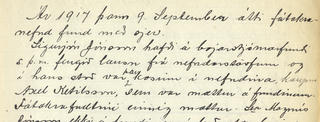 Ár 1917 þann 9. September átti fátækra
nefnd fund með sjer.
Sigurjón Jónsson hafði á bæjarstjórnarfundi
s. þ. m. fengið lausn frá nefndarstörfum og
í hans stað var kosinn í nefndina, kaupm
Axel Ketilsson, sem var mættur á fundinum.
Fátækrafulltrúi einnig mættur. Magnús